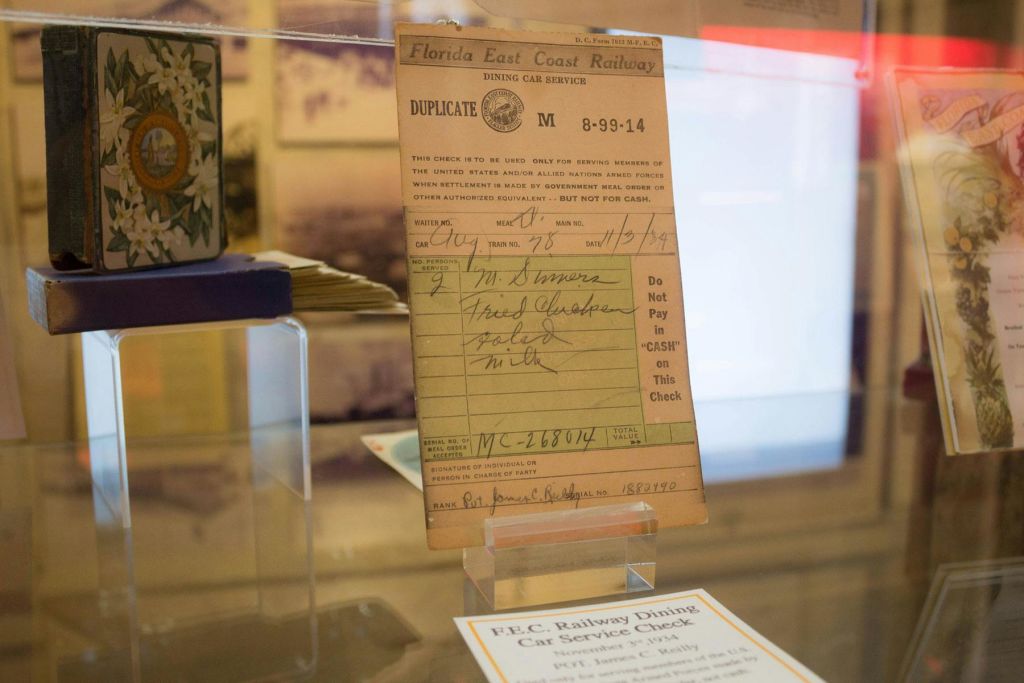 D. C. Form 7012 M-F. E. C.
Florida East Coast Railway
DINING CAR SERVICE
DUPLICATE M 8-99-14
THIS CHECK IS TO BE USED ONLY FOR SERVING MEMBERS OF
THE UNITED STATES AND/OR ALLIED NATIONS ARMED FORCES
WHEN SETTLEMENT IS MADE BY GOVERNMENT MEAL ORDER OR
OTHER AUTHORIZED EQUIVALENT - - BUT NOT FOR CASH.
WAITER NO. MEAL D. MAIN NO.
CAR Aug TRAIN NO. 78 DATE 11/3/34
NO. PERSONS
SERVED
2 M. Dinners
Fried Chicken
Salad
Milk
Do
Not
Pay
in
"CASH"
on
This
Check
SERIAL NO. OF
MEAL ORDER
ACCEPTED
MC-268014
TOTAL
VALUE
SIGNATURE OF INDIVIDUAL OR
PERSON IN CHARGE OF PARTY
RANK Pvt. James C. Reilly SERIAL NO. 1882490
F.E.C. Railway Dining
Car Service Check
November 3rd, 1934
POT. James C. Reilly
Used only for serving members of the U.S.
Armed Forces made by
not cash.